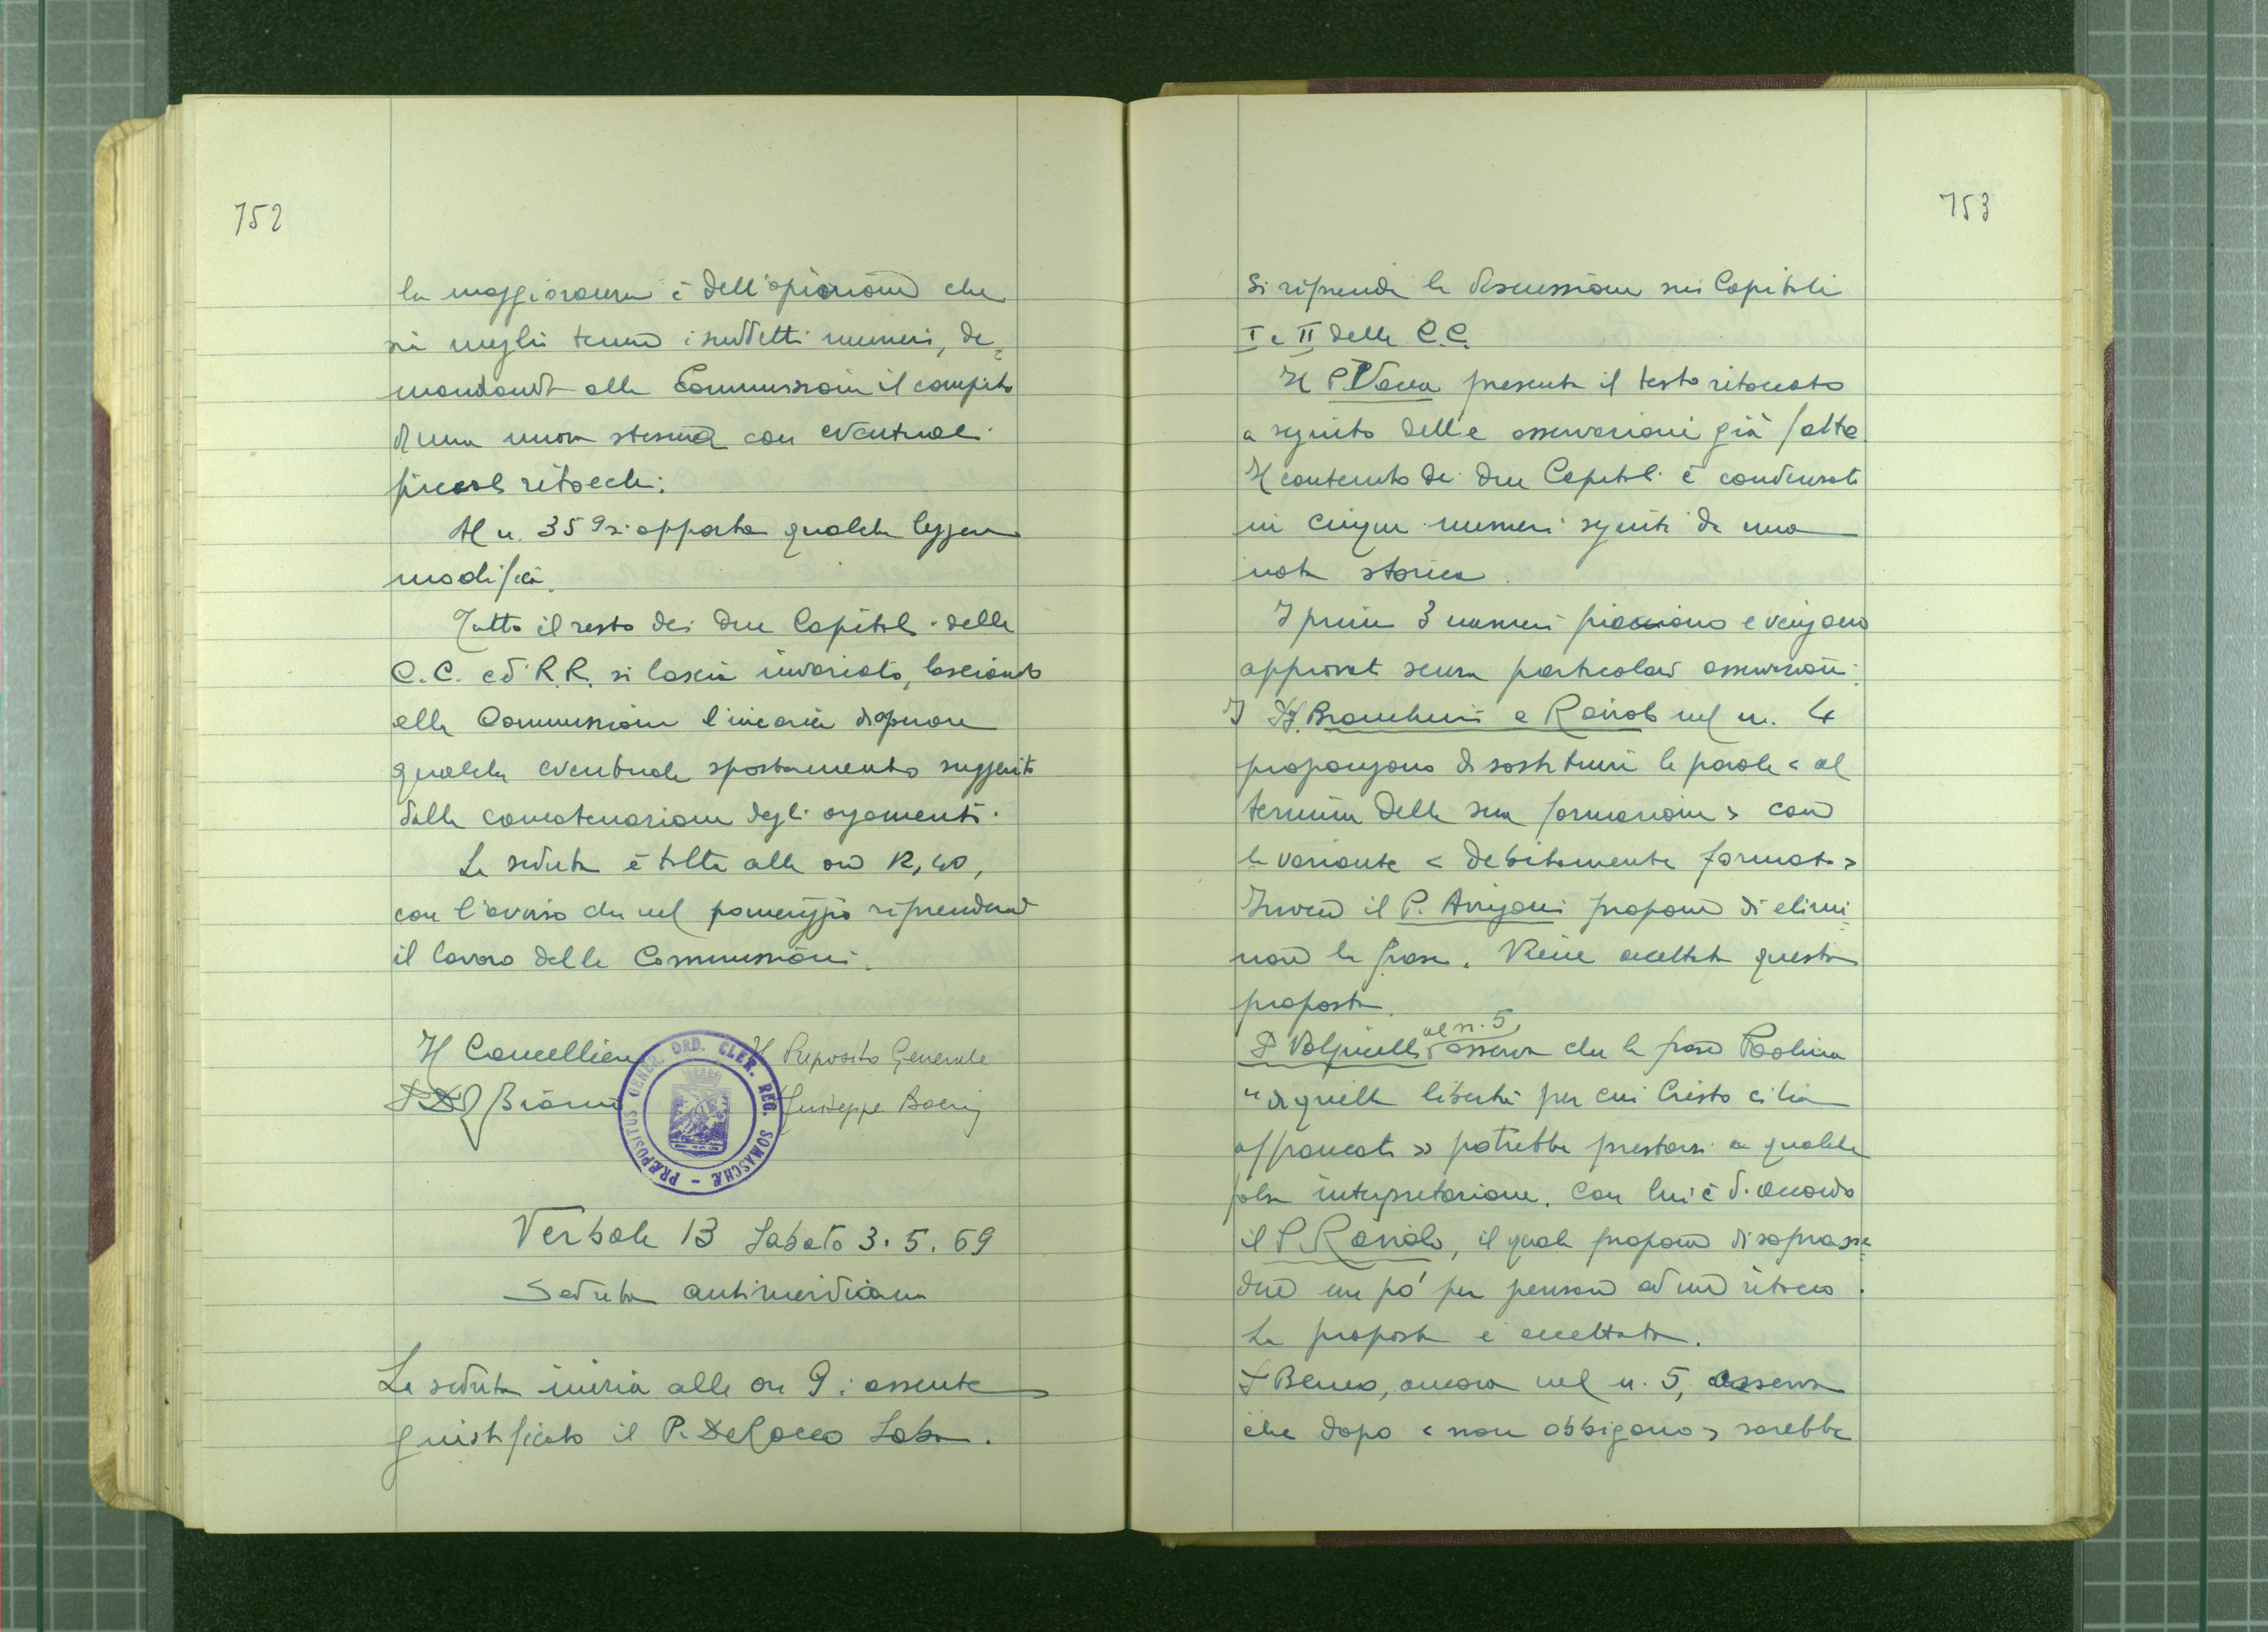 752
la maggioranza è dell'opinione che
sia meglio tenere i suddetti numeri, de=
mandando alla Commissione il compito
di una nuova stesura con eventuali
piccoli ritocchi.
Al n. 359 si apporta qualche leggera
modifica.
Tutto il resto dei due Capitoli delle
C.C. ed R.R. si lascia invariato, lasciando
alla Commissione l'incarico di operare
qualche eventuale spostamento suggerito
dalla concatenazione degli argomenti.
La seduta è tolta alle ore 12,40,
con l'avviso che nel pomeriggio riprenderà
il lavoro delle Commissioni.
Il Cancelliere Il Preposito Generale
P. Bianco Giuseppe Boeris
PRÆPOSITUS GENER. ORD. CLER. REG. SOMASCHÆ
Verbale 13 Sabato 3.5.69
Seduta antimeridiana
La seduta inizia alle ore 9: assente
giustificato il P. De Rocco Saba.
753
Si riprende la discussione sui Capitoli
I e II delle C.C.
Il P. Vacca presenta il testo ritoccato
a seguito delle osservazioni già fatte.
Il contenuto dei due Capitoli è condensato
in cinque numeri seguiti da una
nota storica.
I primi 3 numeri piacciono e vengono
approvati senza particolari osservazioni.
I PP. Brambini e Raviolo nel n. 4
propongono di sostituire le parole < al
termine della sua formazione > con
la variante < debitamente formato >
Invece il P. Arrigoni propone di elimi=
nare la frase. Viene accettata questa
proposta.
P. Volpicelli al n. 5, osserva che la frase Paolina
"di quella libertà per cui Cristo ci ha
affrancati » potrebbe prestarsi a qualche
falsa interpretazione. Con lui è d'accordo
il P. Raviolo, il quale propone di soprasse=
dere un po' per pensare ad un ritocco.
La proposta è accettata.
P. Beneo, ancora nel n. 5, osserva
che dopo < non obbligano > sarebbe